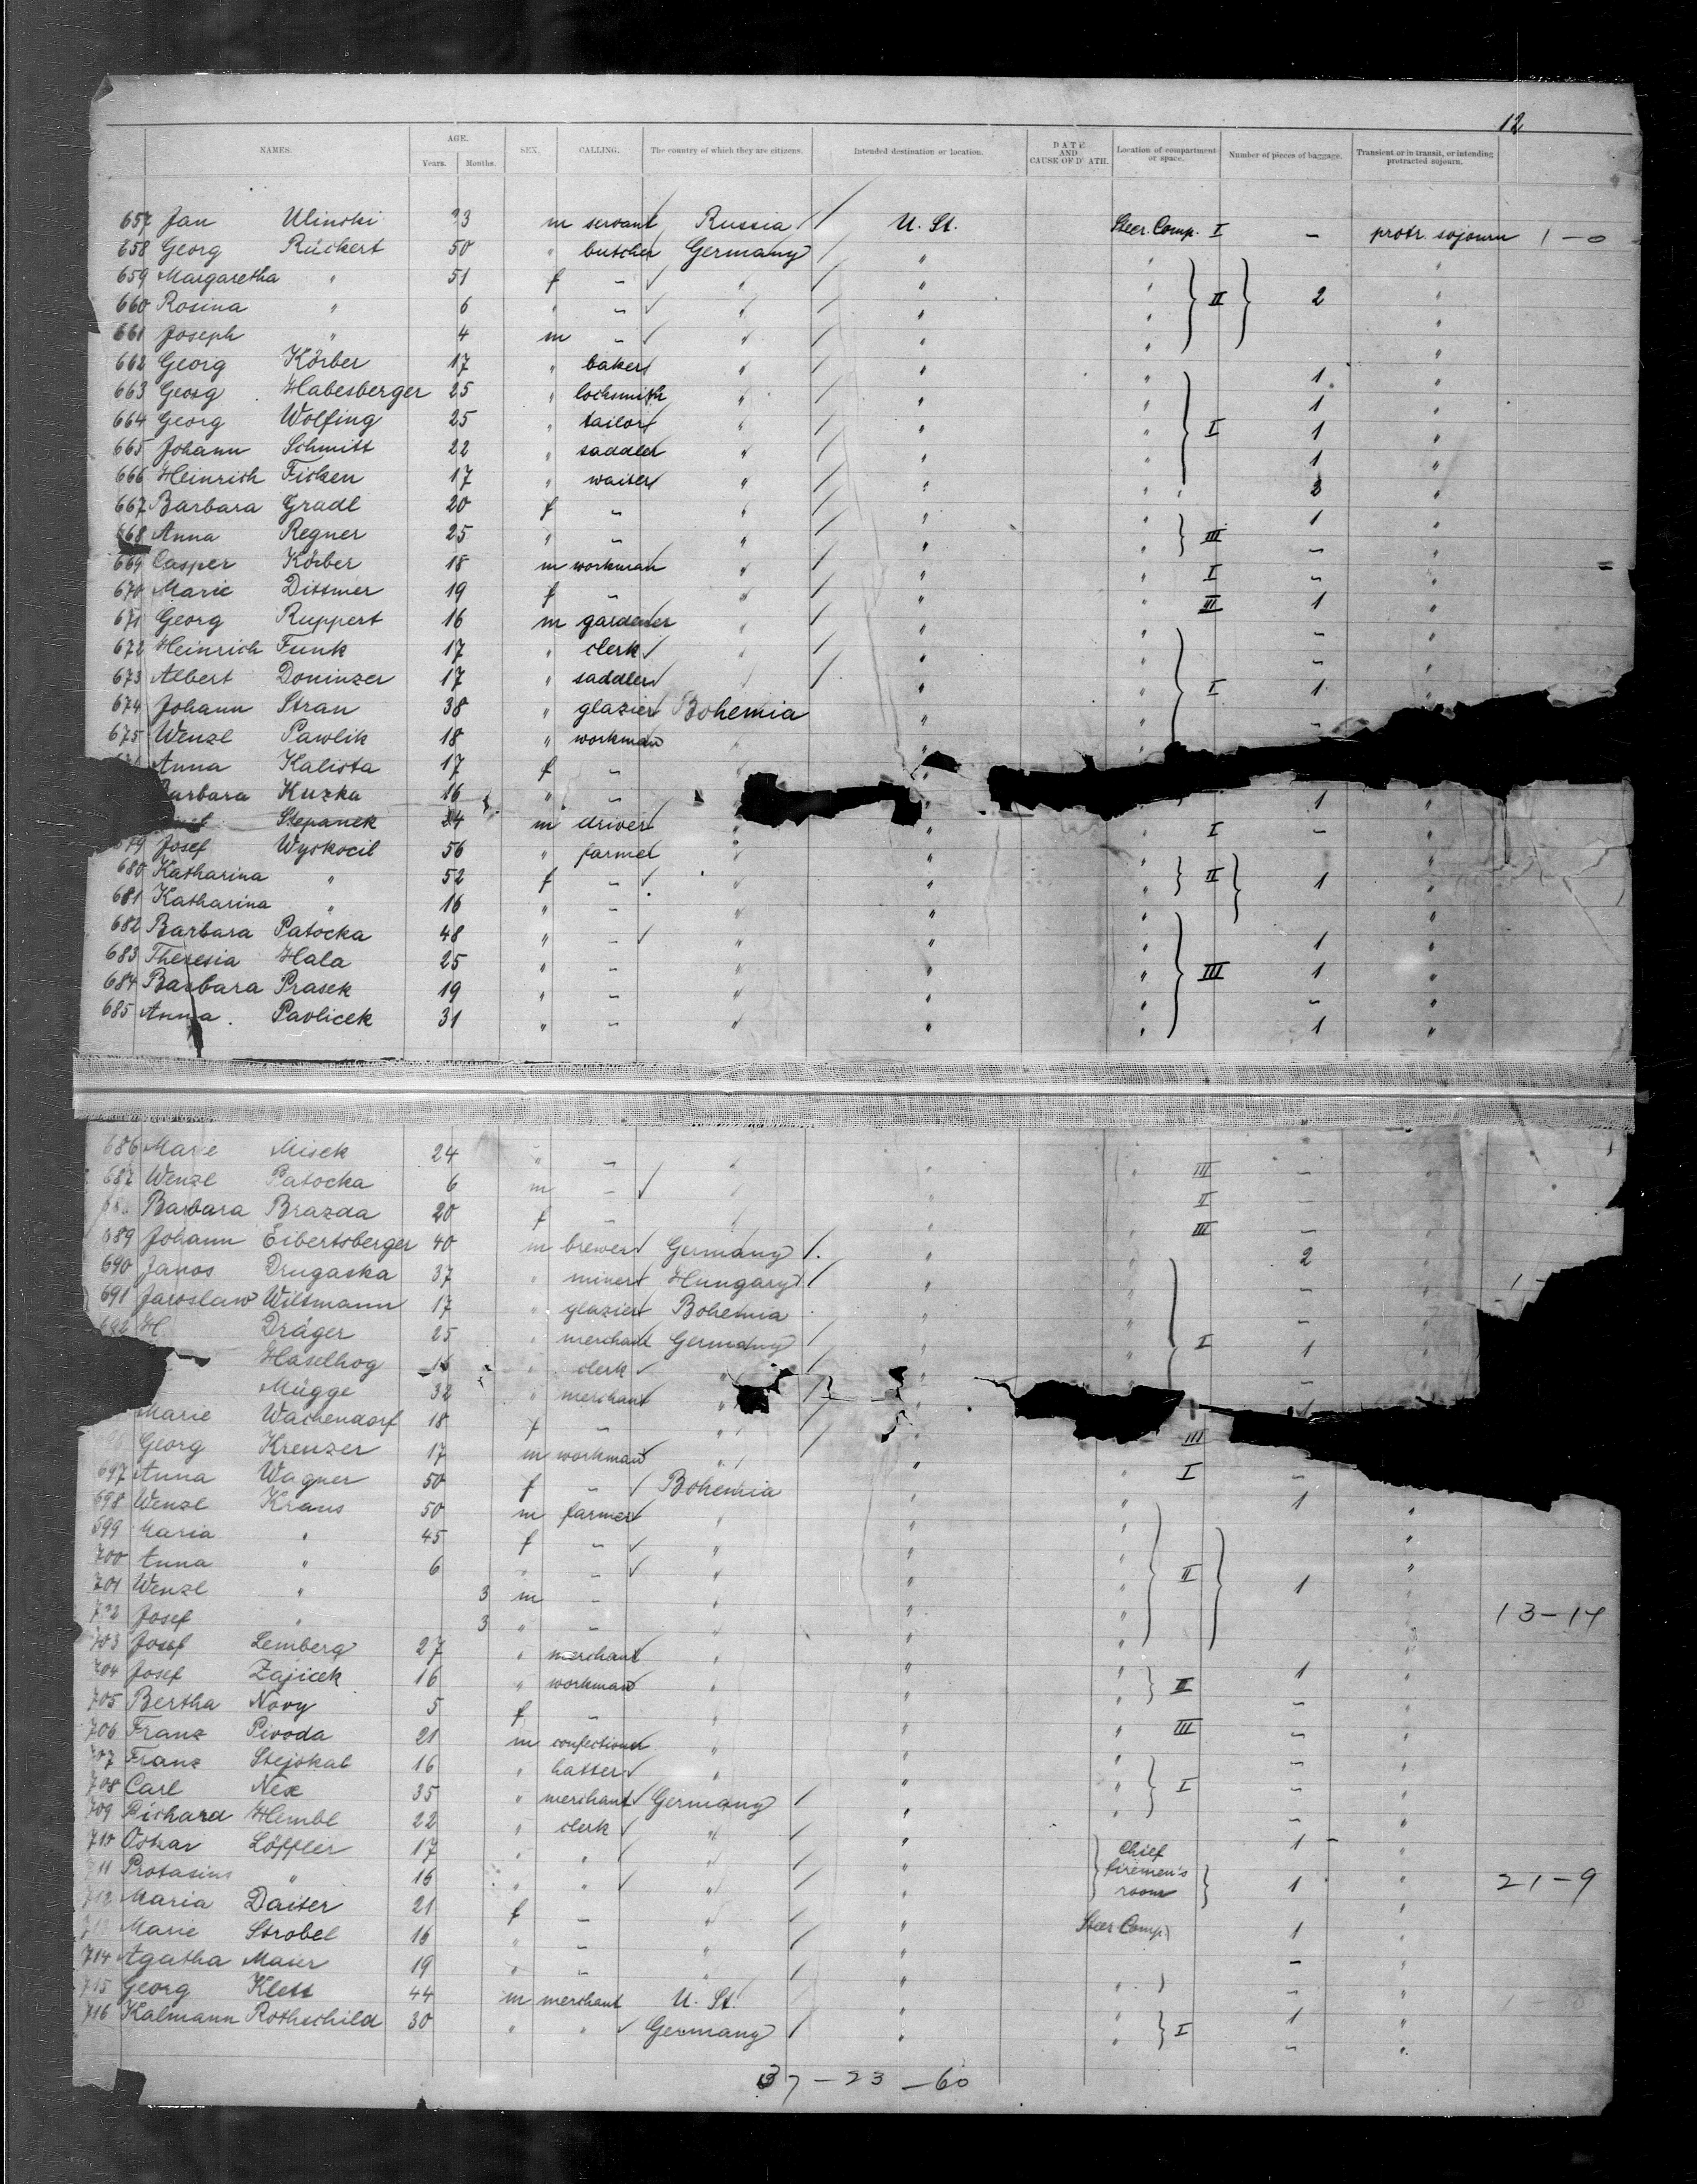 12
NAMES. AGE. Years. Months. SEX. CALLING. The country of which they are citizens. Intended destination or location. DATE AND CAUSE OF D ATH. Location of compartment or space. Number of pieces of baggage. Transient or in transit, or intending protracted sojourn.
657 Jan Ulinski 23 m servant Russia U. St. Steer. Comp. I – protr. sojourn 1–0
658 Georg Rückert 50 " butcher Germany " " "
659 Margaretha " 51 f – " " " II 2 "
660 Rosina " 6 " – " " " "
661 Joseph " 4 m – " " " "
662 Georg Körber 17 " baker " " " 1 "
663 Georg Habesberger 25 " locksmith " " " 1 "
664 Georg Wolfing 25 " tailor " " " I 1 "
665 Johann Schmitt 22 " saddler " " " 1 "
666 Heinrich Ficken 17 " waiter " " " " 3 "
667 Barbara Gradl 20 f – " " " 1 "
668 Anna Regner 25 " – " " " III – "
669 Casper Körber 18 m workman " " " I – "
670 Marie Dittmer 19 f – " " " III 1 "
671 Georg Ruppert 16 m gardener " " " – "
672 Heinrich Funk 17 " clerk " " " – "
673 Albert Doninzer 17 " saddler " " " I 1 "
674 Johann Stran 38 " glazier Bohemia " " –
675 Wenzl Pawlik 18 " workman " " "
Anna Kalista 17 f – "
arbara Kuzka 16 " – " " 1 "
Stepanek 24 m driver " " " I – "
679 Josef Wyskocil 56 " farmer " " " "
680 Katharina " 52 f – " " " II 1 "
681 Katharina " 16 " – " " "
682 Barbara Patocka 48 " – " " " 1 "
683 Theresia Hala 25 " – " " " III 1 "
684 Barbara Prasek 19 " – " " " – "
685 Anna Pavlicek 31 " – " " " 1 "
686 Marie Misek 24 " – " " " III – "
687 Wenzl Patocka 6 m – " " " II –
688 Barbara Brazda 20 f – " " " III –
689 Johann Eibertsberger 40 m brewer Germany " " 2
690 Janos Drugaska 37 " miner Hungary " " – 1 –
691 Jaroslaw Wiltmann 17 " glazier Bohemia " " –
692 H. Dräger 25 " merchant Germany " " I 1
Haselhog 16 " clerk " " –
Mügge 32 " merchant " " 1
Marie Wachendorf 18 f – " III
696 Georg Kreuzer 17 m workman " " " I –
697 Anna Wagner 50 f – Bohemia " " 1 "
698 Wenzl Kraus 50 m farmer " " " "
699 Maria " 45 f – " " " "
700 Anna " 6 " – " " " II 1 "
701 Wenzl " 3 m – " " " "
702 Josef " 3 " – " " " " 13–14
703 Josef Lemberg 27 " merchant " " " 1 "
704 Josef Zajicek 16 " workman " " " II – "
705 Bertha Novy 5 f – " " " III – "
706 Franz Pivoda 21 m confectioner " " – "
707 Franz Stejskal 16 " hatter " " " I – "
708 Carl Nex 35 " merchant Germany " " – "
709 Richard Hembl 22 " clerk " " 1 – "
710 Oskar Löffler 17 " " " " Chief firemen's room 1 "
711 Protasius " 16 " " " " " 21–9
712 Maria Daiser 21 f – " " Steer. Comp. 1 "
713 Marie Strobel 16 " – " " – "
714 Agatha Maier 19 " – " " " – "
715 Georg Klett 44 m merchant U. St. " " 1 "
716 Kalmann Rothschild 30 " " Germany " " I – "
37 – 23 – 60